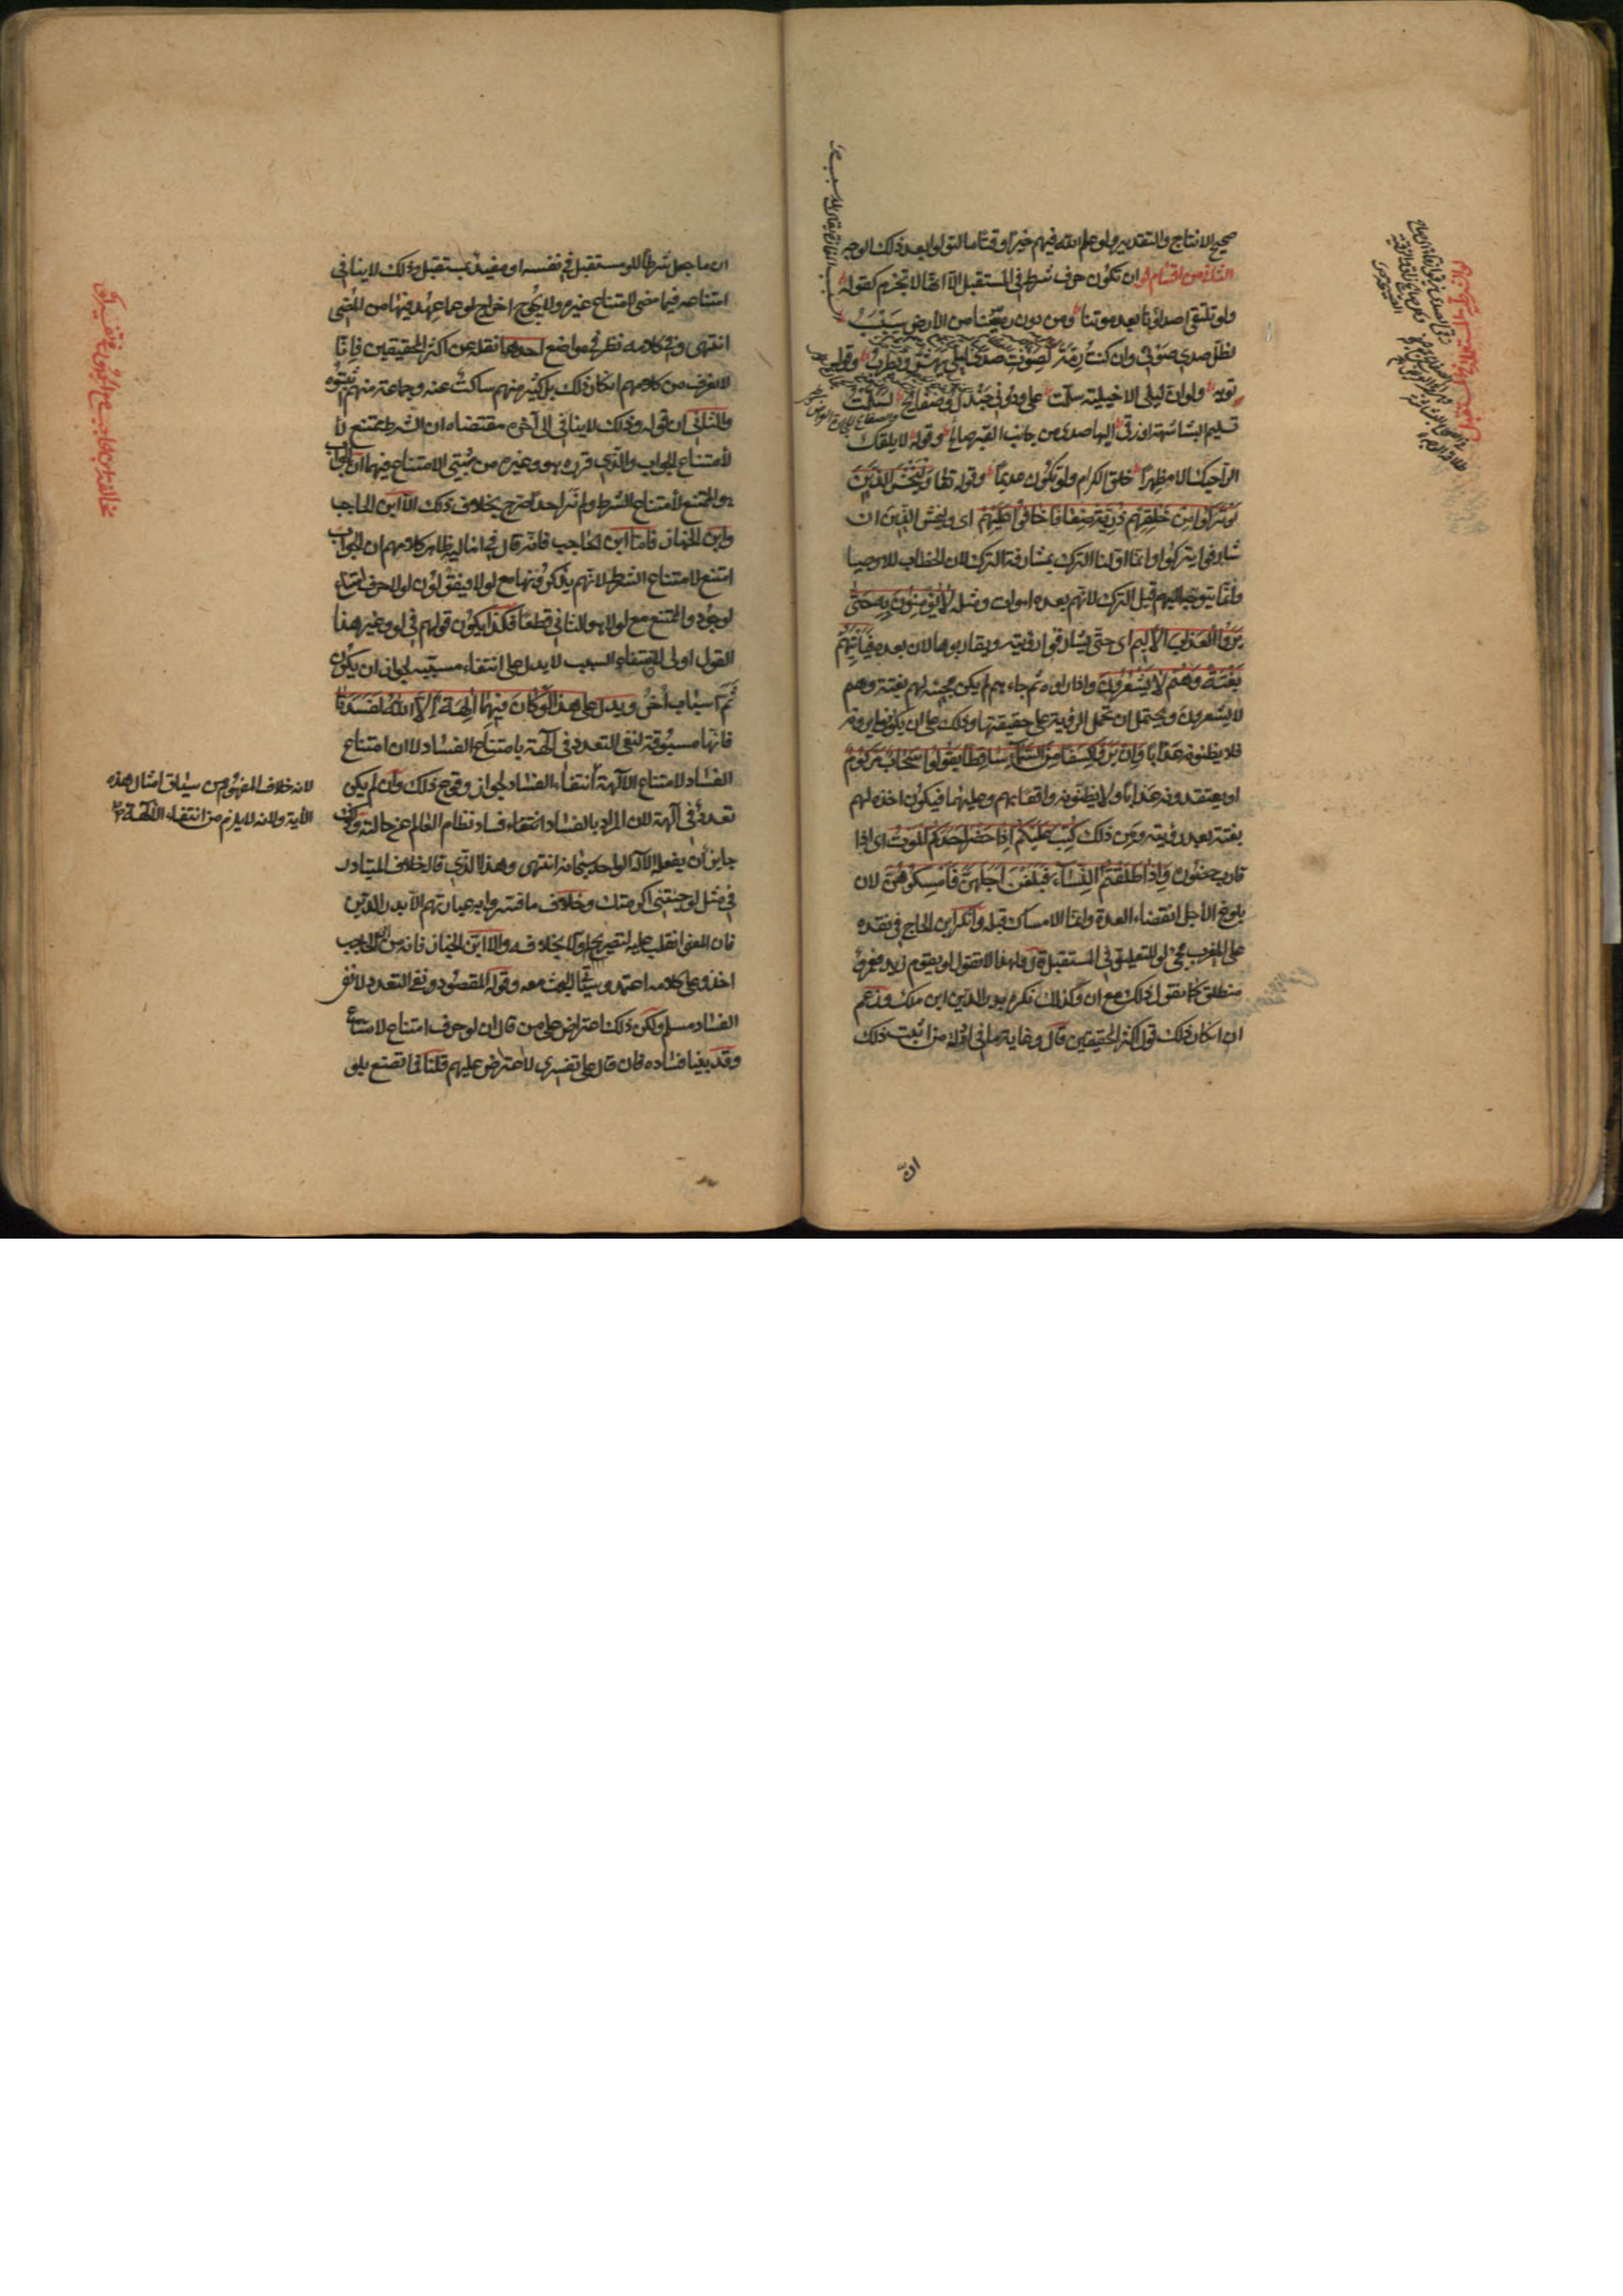 صحيح الانتاج والتقدير ولو علم الله فيهم خيرا وقتا ما لتولوا بعد ذلك الوجه
الثاني من اقسام لو ان تكون حرف شرط في المستقبل الا انها لا تجزم كقوله
ولو تلتقي اصداؤنا بعد موتنا ومن دون رمسينا من الارض سبسب
لظل صدى صوتي وان كنت رمة لصوت صدى ليلى يهش ويطرب وقول
توبه ولو ان ليلى الاخيلية سلمت علي ودوني جندل وصفائح لسلمت
تسليم البشاشة او زقى اليها صدى من جانب القبر صائح وقوله لا يلفك
الراجيك الا مظهرا خلق الكرام ولو تكون عديما وقوله تعالى وليخش الذين
لو تركوا من خلفهم ذرية ضعافا خافوا عليهم اى وليخش الذين ان
شارفوا ان يتركوا وانما اولنا الترك بمشارفة الترك لان الخطاب للاوصيا
وانما يتوجه اليهم قبل الترك لانهم بعده اموات ومثله لا يؤمنون به حتى
يروا العذاب الاليم اى حتى يشارفوا رؤيته ويقاربوها لان بعده فيأتيهم
بغتة وهم لا يشعرون واذا راوه ثم جاءهم لم يكن مجيئه لهم بغتة وهم
لا يشعرون ويحتمل ان تحمل الرؤية على حقيقتها وذلك على ان يكونوا يرونه
فلا يظنونه عذابا وان يروا كسفا من السماء ساقطا يقولوا سحاب مركوم
او يعتقدونه عذابا ولا يظنونه واقعا بهم وعليهما فيكون اخذه لهم
بغتة بعد رؤيته ومن ذلك كتب عليكم اذا حضر احدكم الموت اى اذا
قارب حضوره واذا طلقتم النساء فبلغن اجلهن فامسكوهن لان
بلوغ الاجل انقضاء العدة وانما الامساك قبله وانكر ابن الحاج في نقده
على المقرب مجئ لو للتعليق في المستقبل قال ولهذا لا تقول لو يقوم زيد فعمرو
منطلق كما تقول ذلك مع ان وكذلك انكره بدر الدين ابن مالك وزعم
ان انكار ذلك قول اكثر المحققين قال وغاية ما في ادلة من اثبت ذلك
ان
ان ما جعل شرطا للو مستقبل في نفسه او مقيد بمستقبل وذلك لا ينافي
امتناعه فيما مضى لامتناع غيره ولا يحوج اخراج لو عما عهد فيها من المضي
انتهى وفي كلامه نظر في مواضع احدها نقله عن اكثر المحققين فانا
لا نعرف من كلامهم انكار ذلك بل كثير منهم ساكت عنه وجماعة منهم اثبتوه
والثاني ان قوله وذلك لا ينافي الى آخره مقتضاه ان الشرط ممتنع لا
لامتناع الجواب والذي قرره هو وغيره من مثبتي الامتناع فيهما ان الجواب
هو الممتنع لامتناع الشرط ولم نر احدا صرح بخلاف ذلك الا ابن الحاجب
وابن الخباز فاما ابن الحاجب فانه قال في اماليه ظاهر كلامهم ان الجواب
امتنع لامتناع الشرط لانهم يذكرونها مع لولا فيقولون لولا حرف امتناع
لوجود والممتنع مع لولا هو الثاني قطعا فكذا يكون قولهم في لو وغير هذا
القول اولى لان انتفاء السبب لا يدل على انتفاء مسببه لجواز ان يكون
ثم اسباب اخر ويدل على هذا لو كان فيهما آلهة الا الله لفسدتا
فانها مسبوقة لنفي التعدد في الآلهة بامتناع الفساد لا ان امتناع
الفساد لامتناع الآلهة انتفاء الفساد لجواز وقوع ذلك وان لم يكن
تعدد في الآلهة لان المراد بالفساد انتفاء فساد نظام العالم عن حالته وذلك
جايز ان يفعله الاله الواحد سبحانه انتهى وهذا الذي قاله خلاف المتبادر
في مثل لو جئتني اكرمتك وخلاف ما فسروا به عبارتهم الا بدر الدين
فان المعنى انقلب عليه لتصريحه اولا بخلافه والا ابن الخباز فانه من ابن الحاجب
اخذ وعلى كلامه اعتمد وسيأتي البحث معه وقوله المقصود نفي التعدد لانتفاء
الفساد مسلم ولكن ذلك اعتراض على من قال ان لو حرف امتناع لامتناع
وقد بينا فساده فان قال على تفسيري لا اعتراض عليهم قلنا فما تصنع بلو
لانه خلاف المفهوم من سياق امثال هذه
الآية ولانه لا يلزم من انتفاء الآلهة